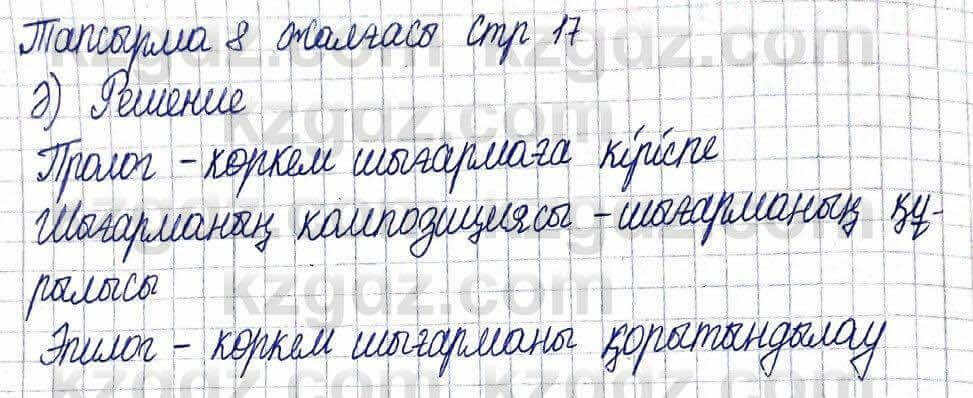 Тапсырма 8 жалғасы Стр 17
ә) Решение
Пролог - көркем шығармаға кіріспе
Шығарманың композициясы - шығарманың құ-
рылысы
Эпилог - көркем шығарманы қорытындылау
kzgdz.com